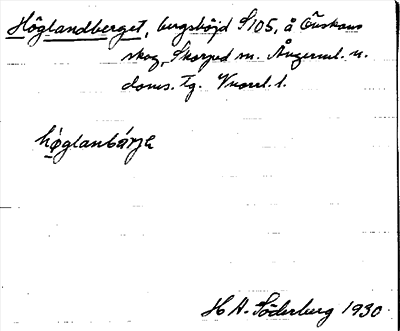 Höglandberget, bergshöjd S105, å Önskans
skog, Skorped sn. Ångerml. n.
doms. tg.
høglanbárje
H A. Söderberg 1930